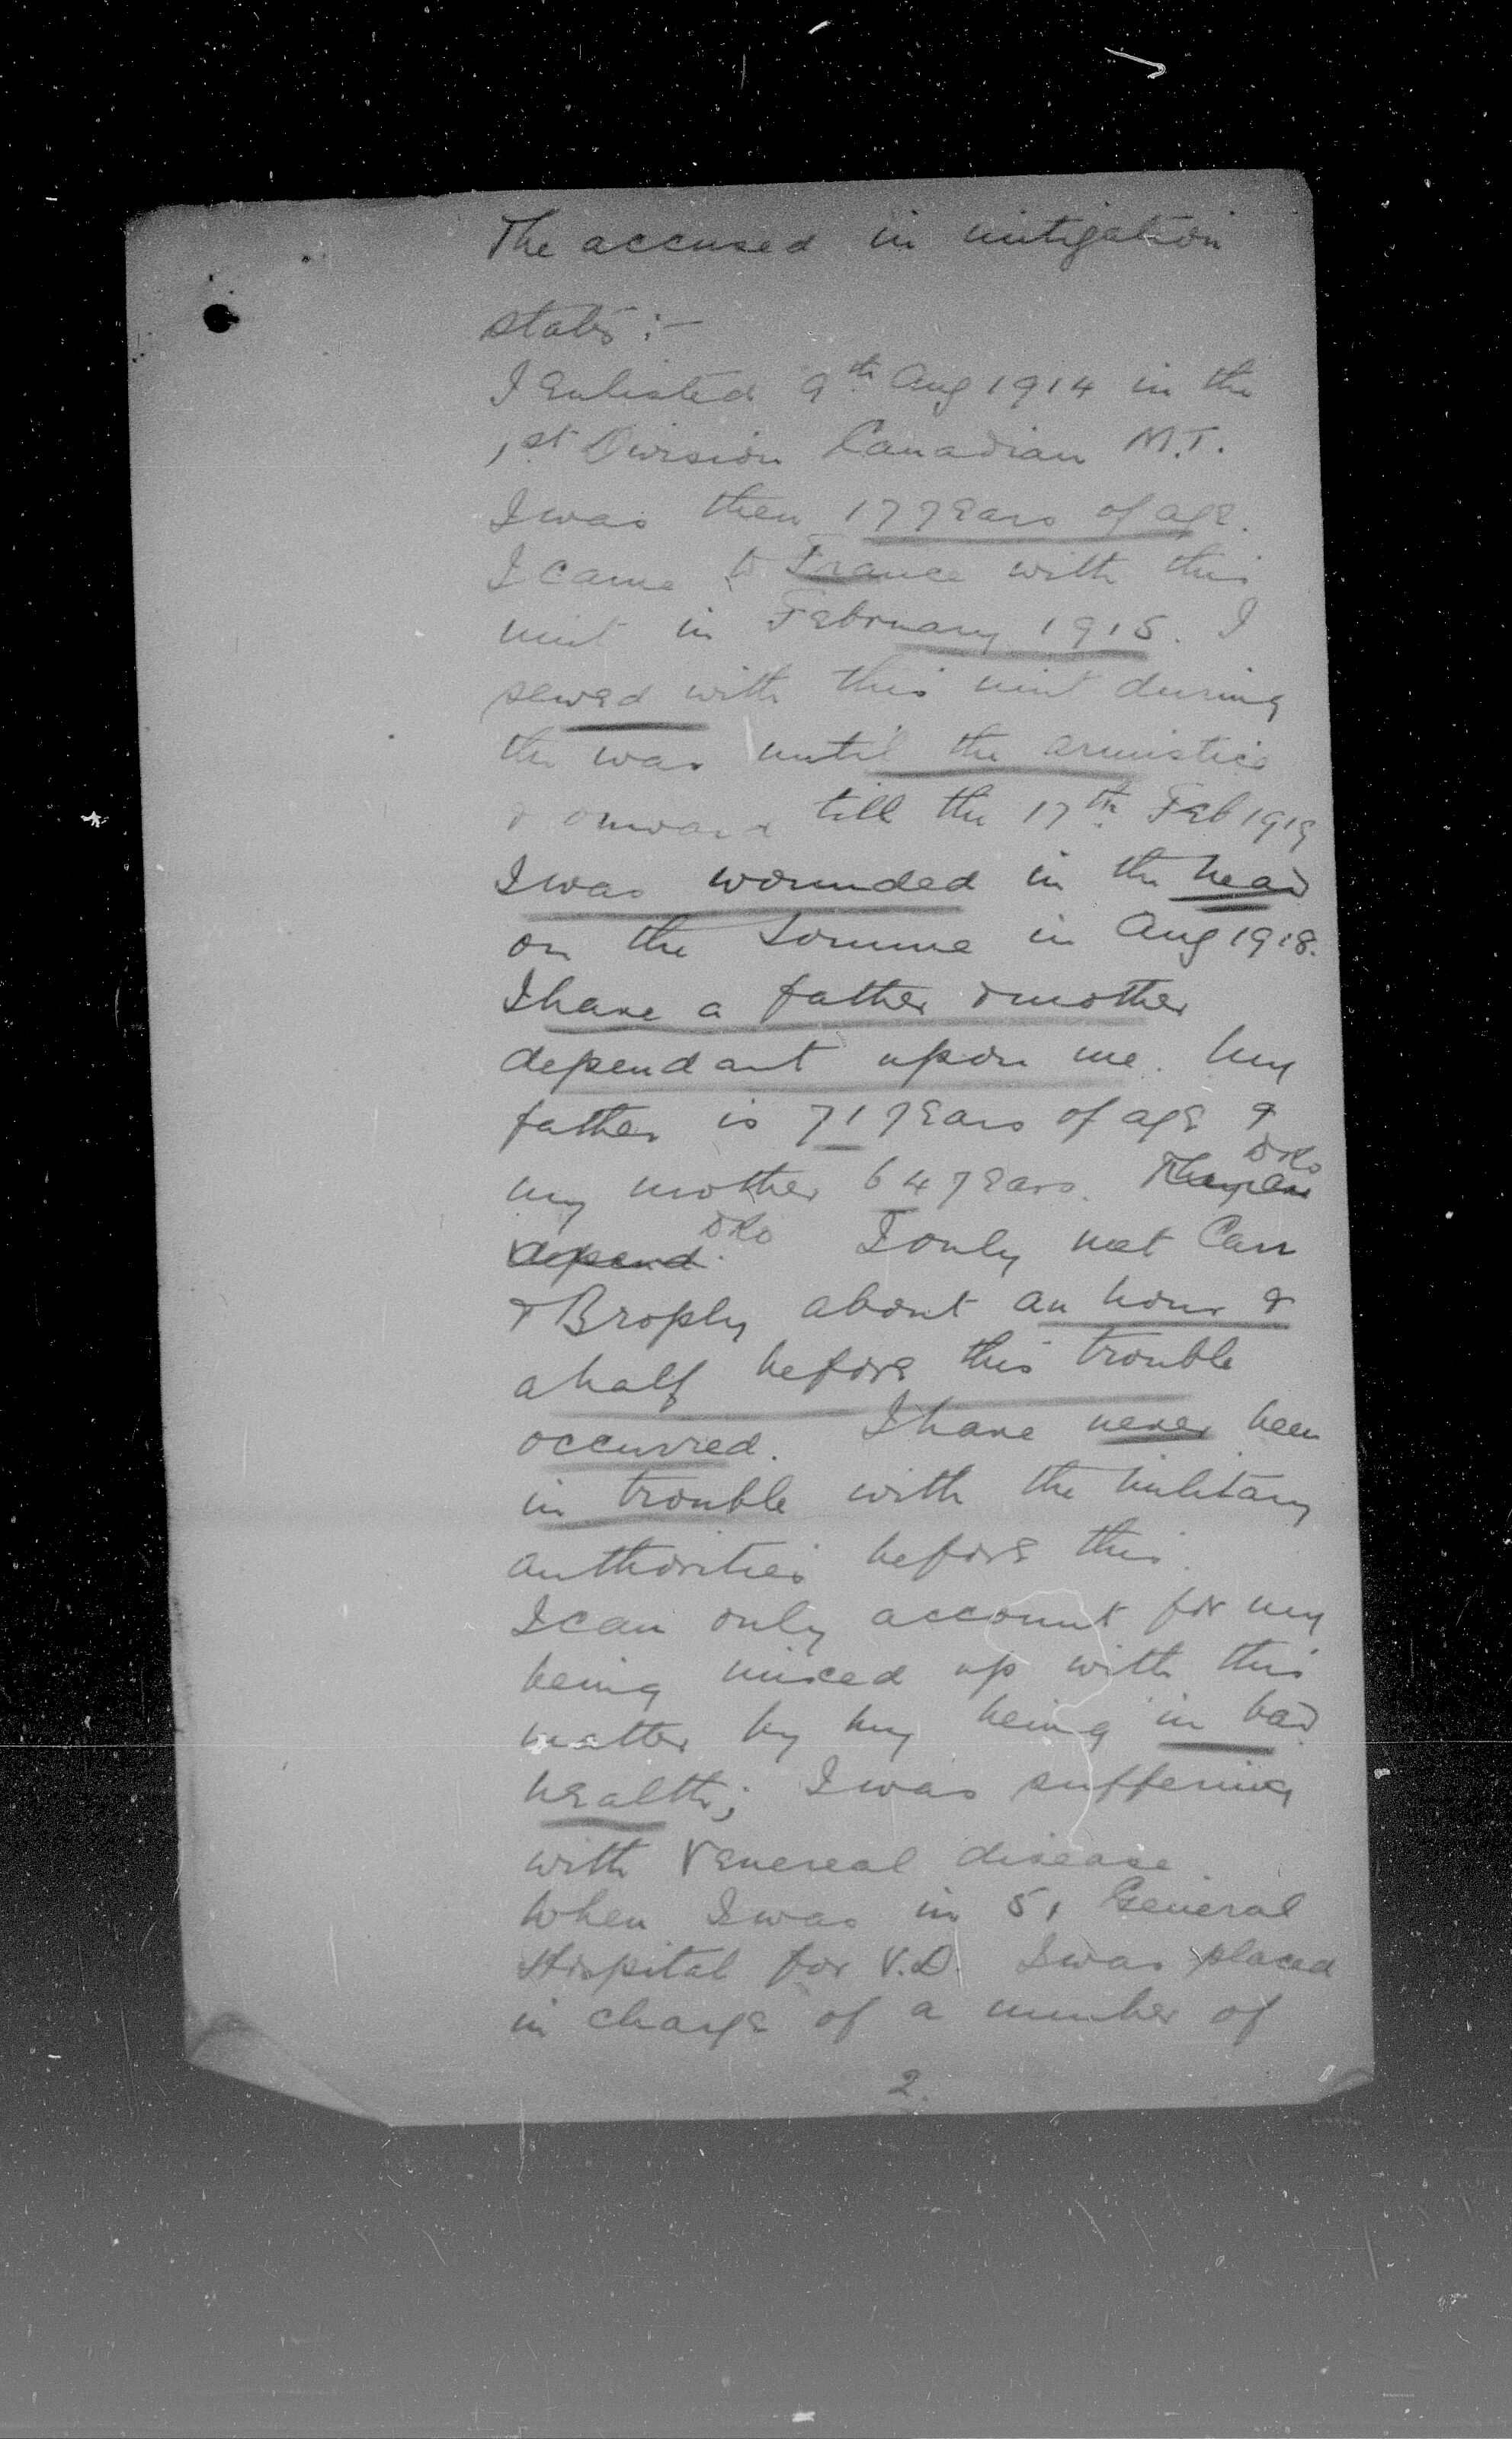 The accused in mitigation
states :-
I Enlisted 9th Aug 1914 in the
1st Division Canadian M.T.
I was then 17 years of age.
I came to France with this
unit in February 1915. I
served with this unit during
the war until the armistice
& onward till the 17th Feb 1919
I was wounded in the head
on the Somme in Aug 1918.
I have a father & mother
dependant upon me. My
father is 71 years of age &
my mother 64 years. They are
depend. I only met Carr
& Brophy about an hour &
a half before this trouble
occurred. I have never been
in trouble with the military
authorities before this.
I can only account for my
being mixed up with this
matter by my being in bad
health; I was suffering
with Venereal disease.
When I was in 51 General
Hospital for V.D. I was placed
in charge of a number of
2.